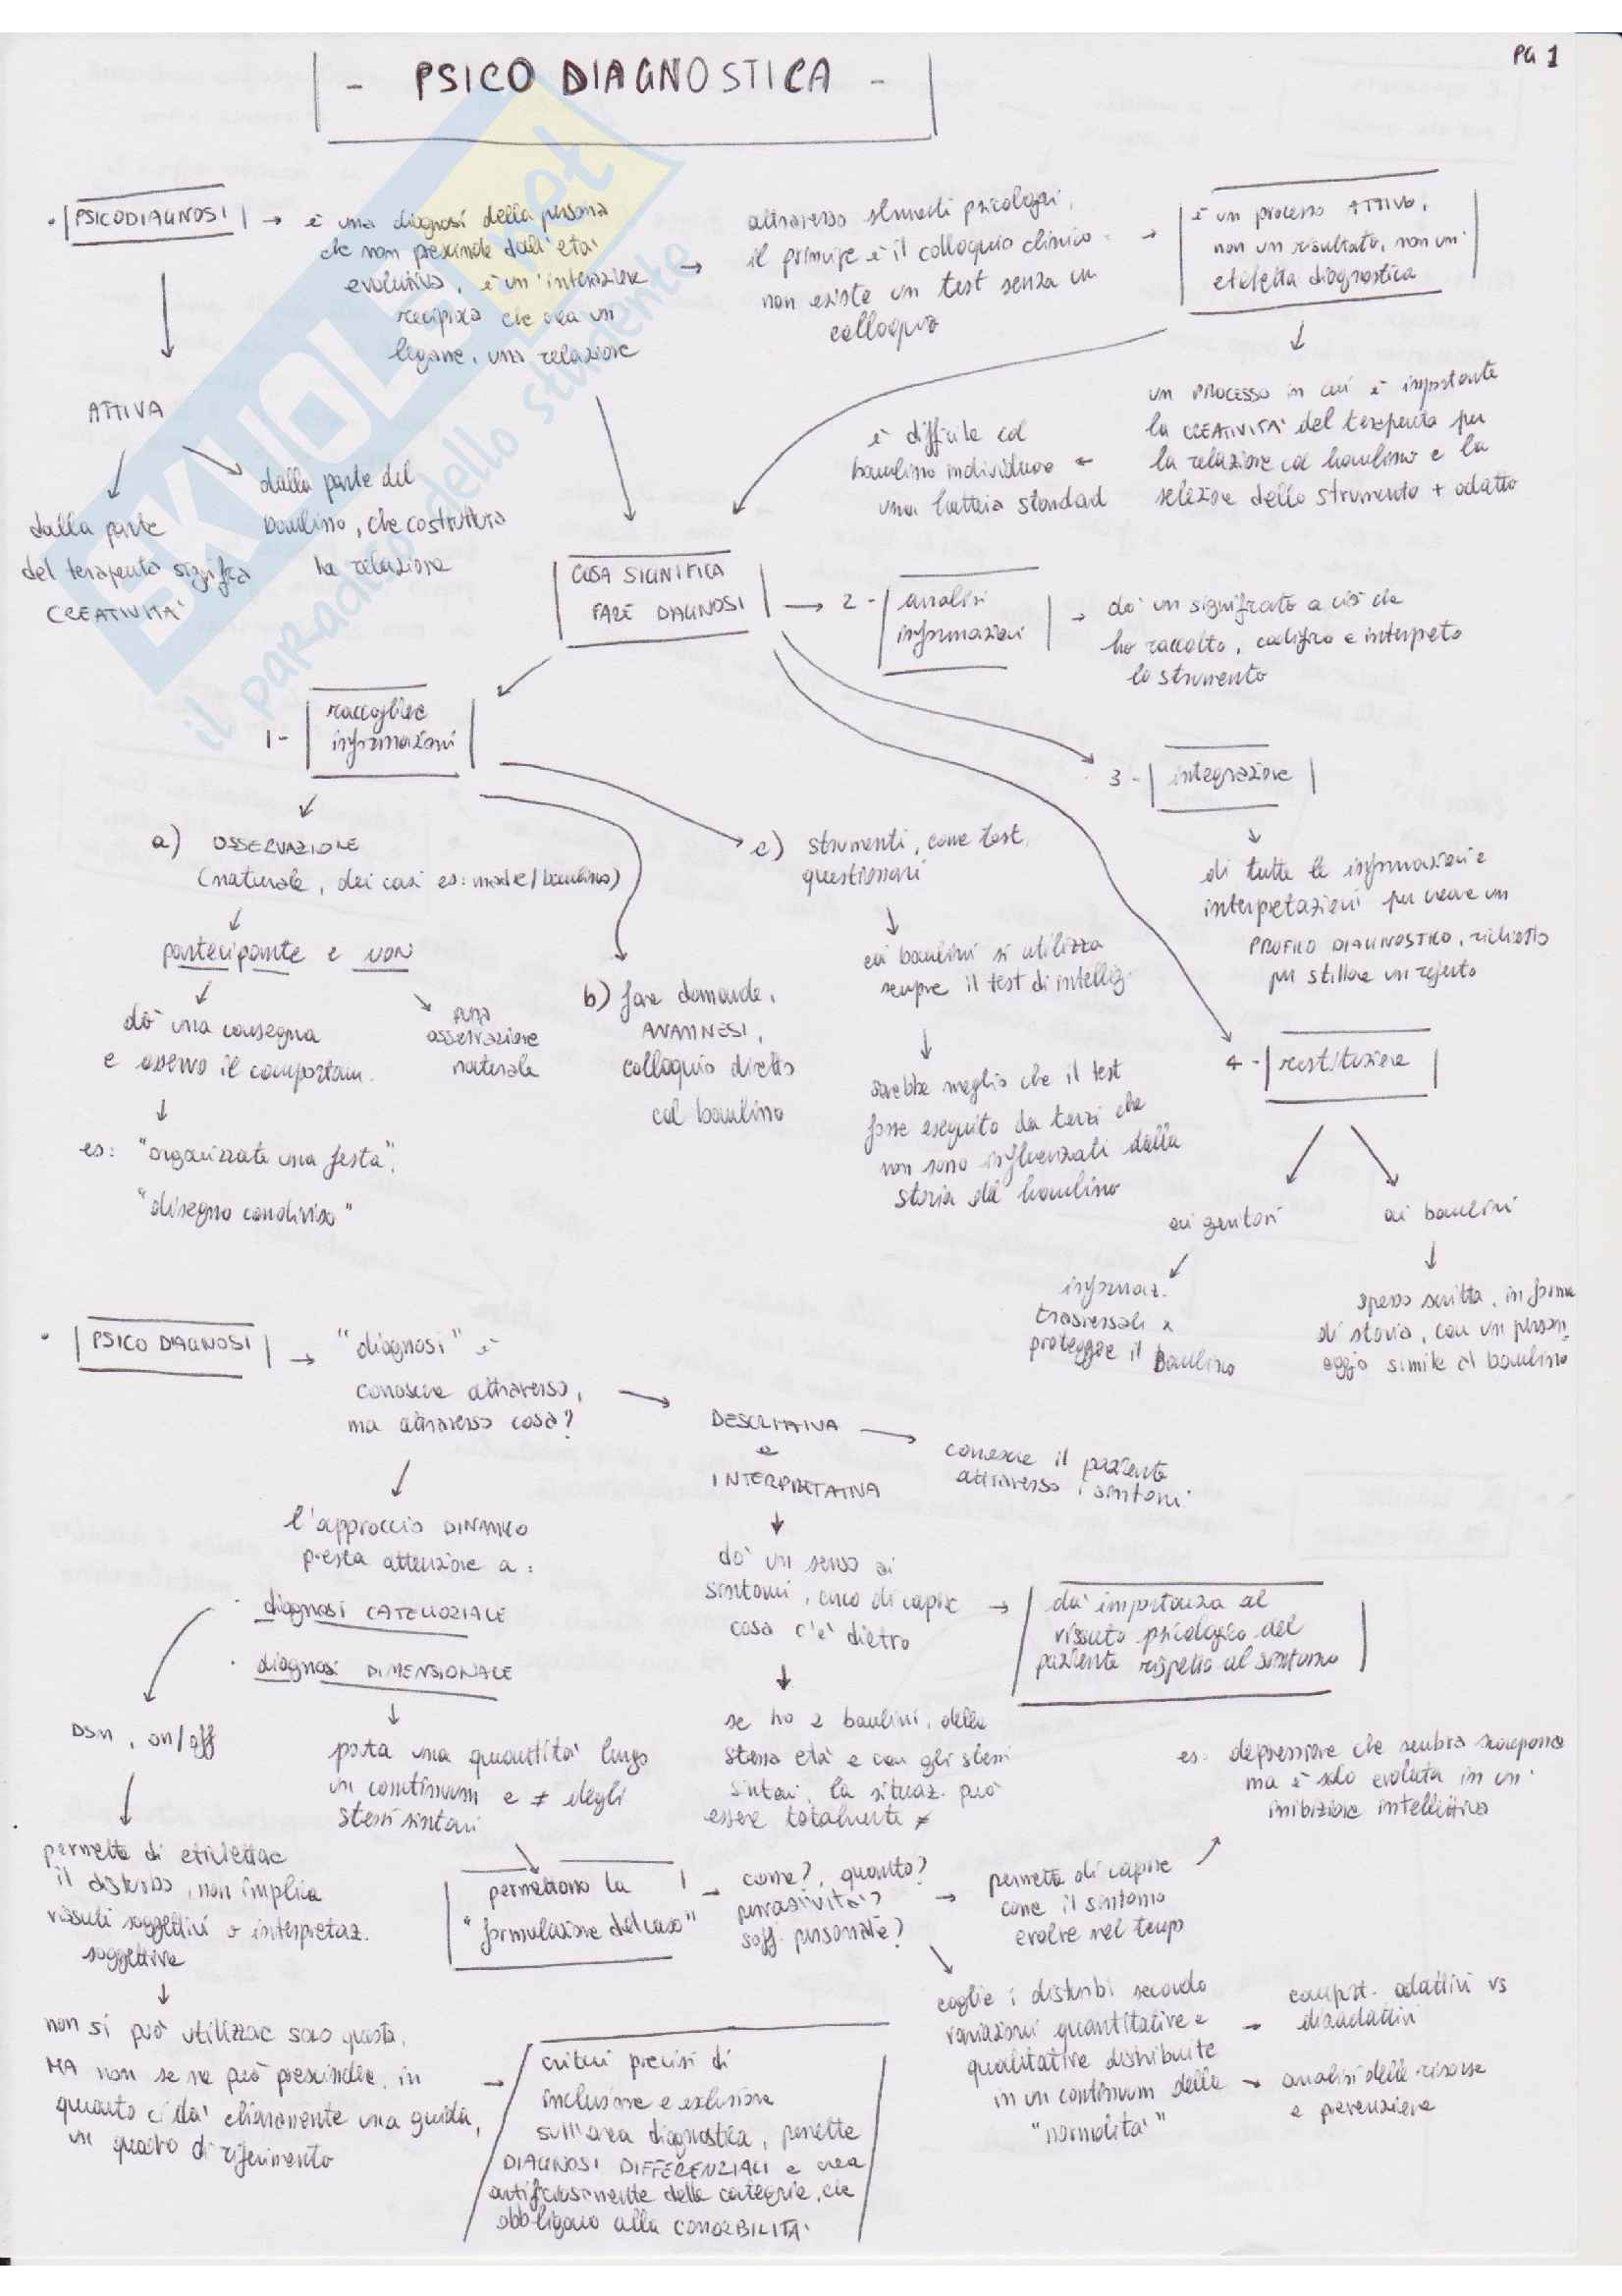 PG 1
- PSICO DIAGNOSTICA -
• PSICODIAGNOSI → è una diagnosi della persona
che non prescinde dall'età
evolutiva, è un'interazione
reciproca che crea un
legame, una relazione
→ attraverso strumenti psicologici,
il principe è il colloquio clinico
non esiste un test senza un
colloquio
→ è un processo ATTIVO,
non un risultato, non un'
etichetta diagnostica
un PROCESSO in cui è importante
la CREATIVITÀ del terapeuta per
la relazione col bambino e la
selezione dello strumento + adatto
è difficile col
bambino individuare ←
una batteria standard
ATTIVA
dalla parte
del terapeuta significa
CREATIVITÀ
dalla parte del
bambino, che costruttura
la relazione
COSA SIGNIFICA
FARE DIAGNOSI
1 - raccogliere
informazioni
a) OSSERVAZIONE
(naturale, dei casi es: madre/bambino)
partecipante e NON
dò una consegna
e osservo il comportam.
es: "organizzate una festa",
"disegno condiviso"
pura
osservazione
naturale
b) fare domande,
ANAMNESI,
colloquio diretto
col bambino
c) strumenti, come test,
questionari
coi bambini si utilizza
sempre il test di intellig.
sarebbe meglio che il test
fosse eseguito da terzi che
non sono influenzati dalla
storia del bambino
→ 2 - analisi
informazioni
→ do' un significato a ciò che
ho raccolto, codifico e interpreto
lo strumento
3 - integrazione
di tutte le informazioni e
interpretazioni per creare un
PROFILO DIAGNOSTICO, richiesto
per stillare un referto
4 - restituzione
ai genitori
informaz.
trasversali x
proteggere il bambino
ai bambini
spesso scritta, in forma
di storia, con un person
aggio simile al bambino
• PSICO DIAGNOSI → "diagnosi" è
conoscere attraverso,
ma attraverso cosa?
l'approccio DINAMICO
presta attenzione a:
· diagnosi CATEGORIALE
· diagnosi DIMENSIONALE
DSM, on/off
permette di etichettare
il disturbo, non implica
vissuti soggettivi o interpretaz.
soggettive
non si può utilizzare solo questa,
MA non se ne può prescindere, in
quanto ci dà chiaramente una guida,
un quadro di riferimento
→ criteri precisi di
inclusione e esclusione
sull'area diagnostica, permette
DIAGNOSI DIFFERENZIALI e crea
artificiosamente delle categorie, che
obbligano alla COMORBILITÀ
porta una quantità lungo
un continuum e ≠ degli
stessi sintomi
permettono la
"formulazione del caso"
→ come?, quanto?
pervasività?
soff. personale?
→ permette di capire
come il sintomo
evolve nel tempo
es: depressione che sembra scomparsa
ma è solo evoluta in un'
inibizione intellettiva
coglie i disturbi secondo
variazioni quantitative e
qualitative distribuite
in un continuum della
"normalità"
→ comport. adattivi vs
disadattivi
→ analisi delle risorse
e prevenzione
DESCRITTIVA
e
INTERPRETATIVA
→ conoscere il paziente
attraverso i sintomi
do' un senso ai
sintomi, cerco di capire
cosa c'è dietro
→ da' importanza al
vissuto psicologico del
paziente rispetto al sintomo
se ho 2 bambini, della
stessa età e con gli stessi
sintomi, la situaz. può
essere totalmente ≠
SKUOLA.net
il paradiso dello studente